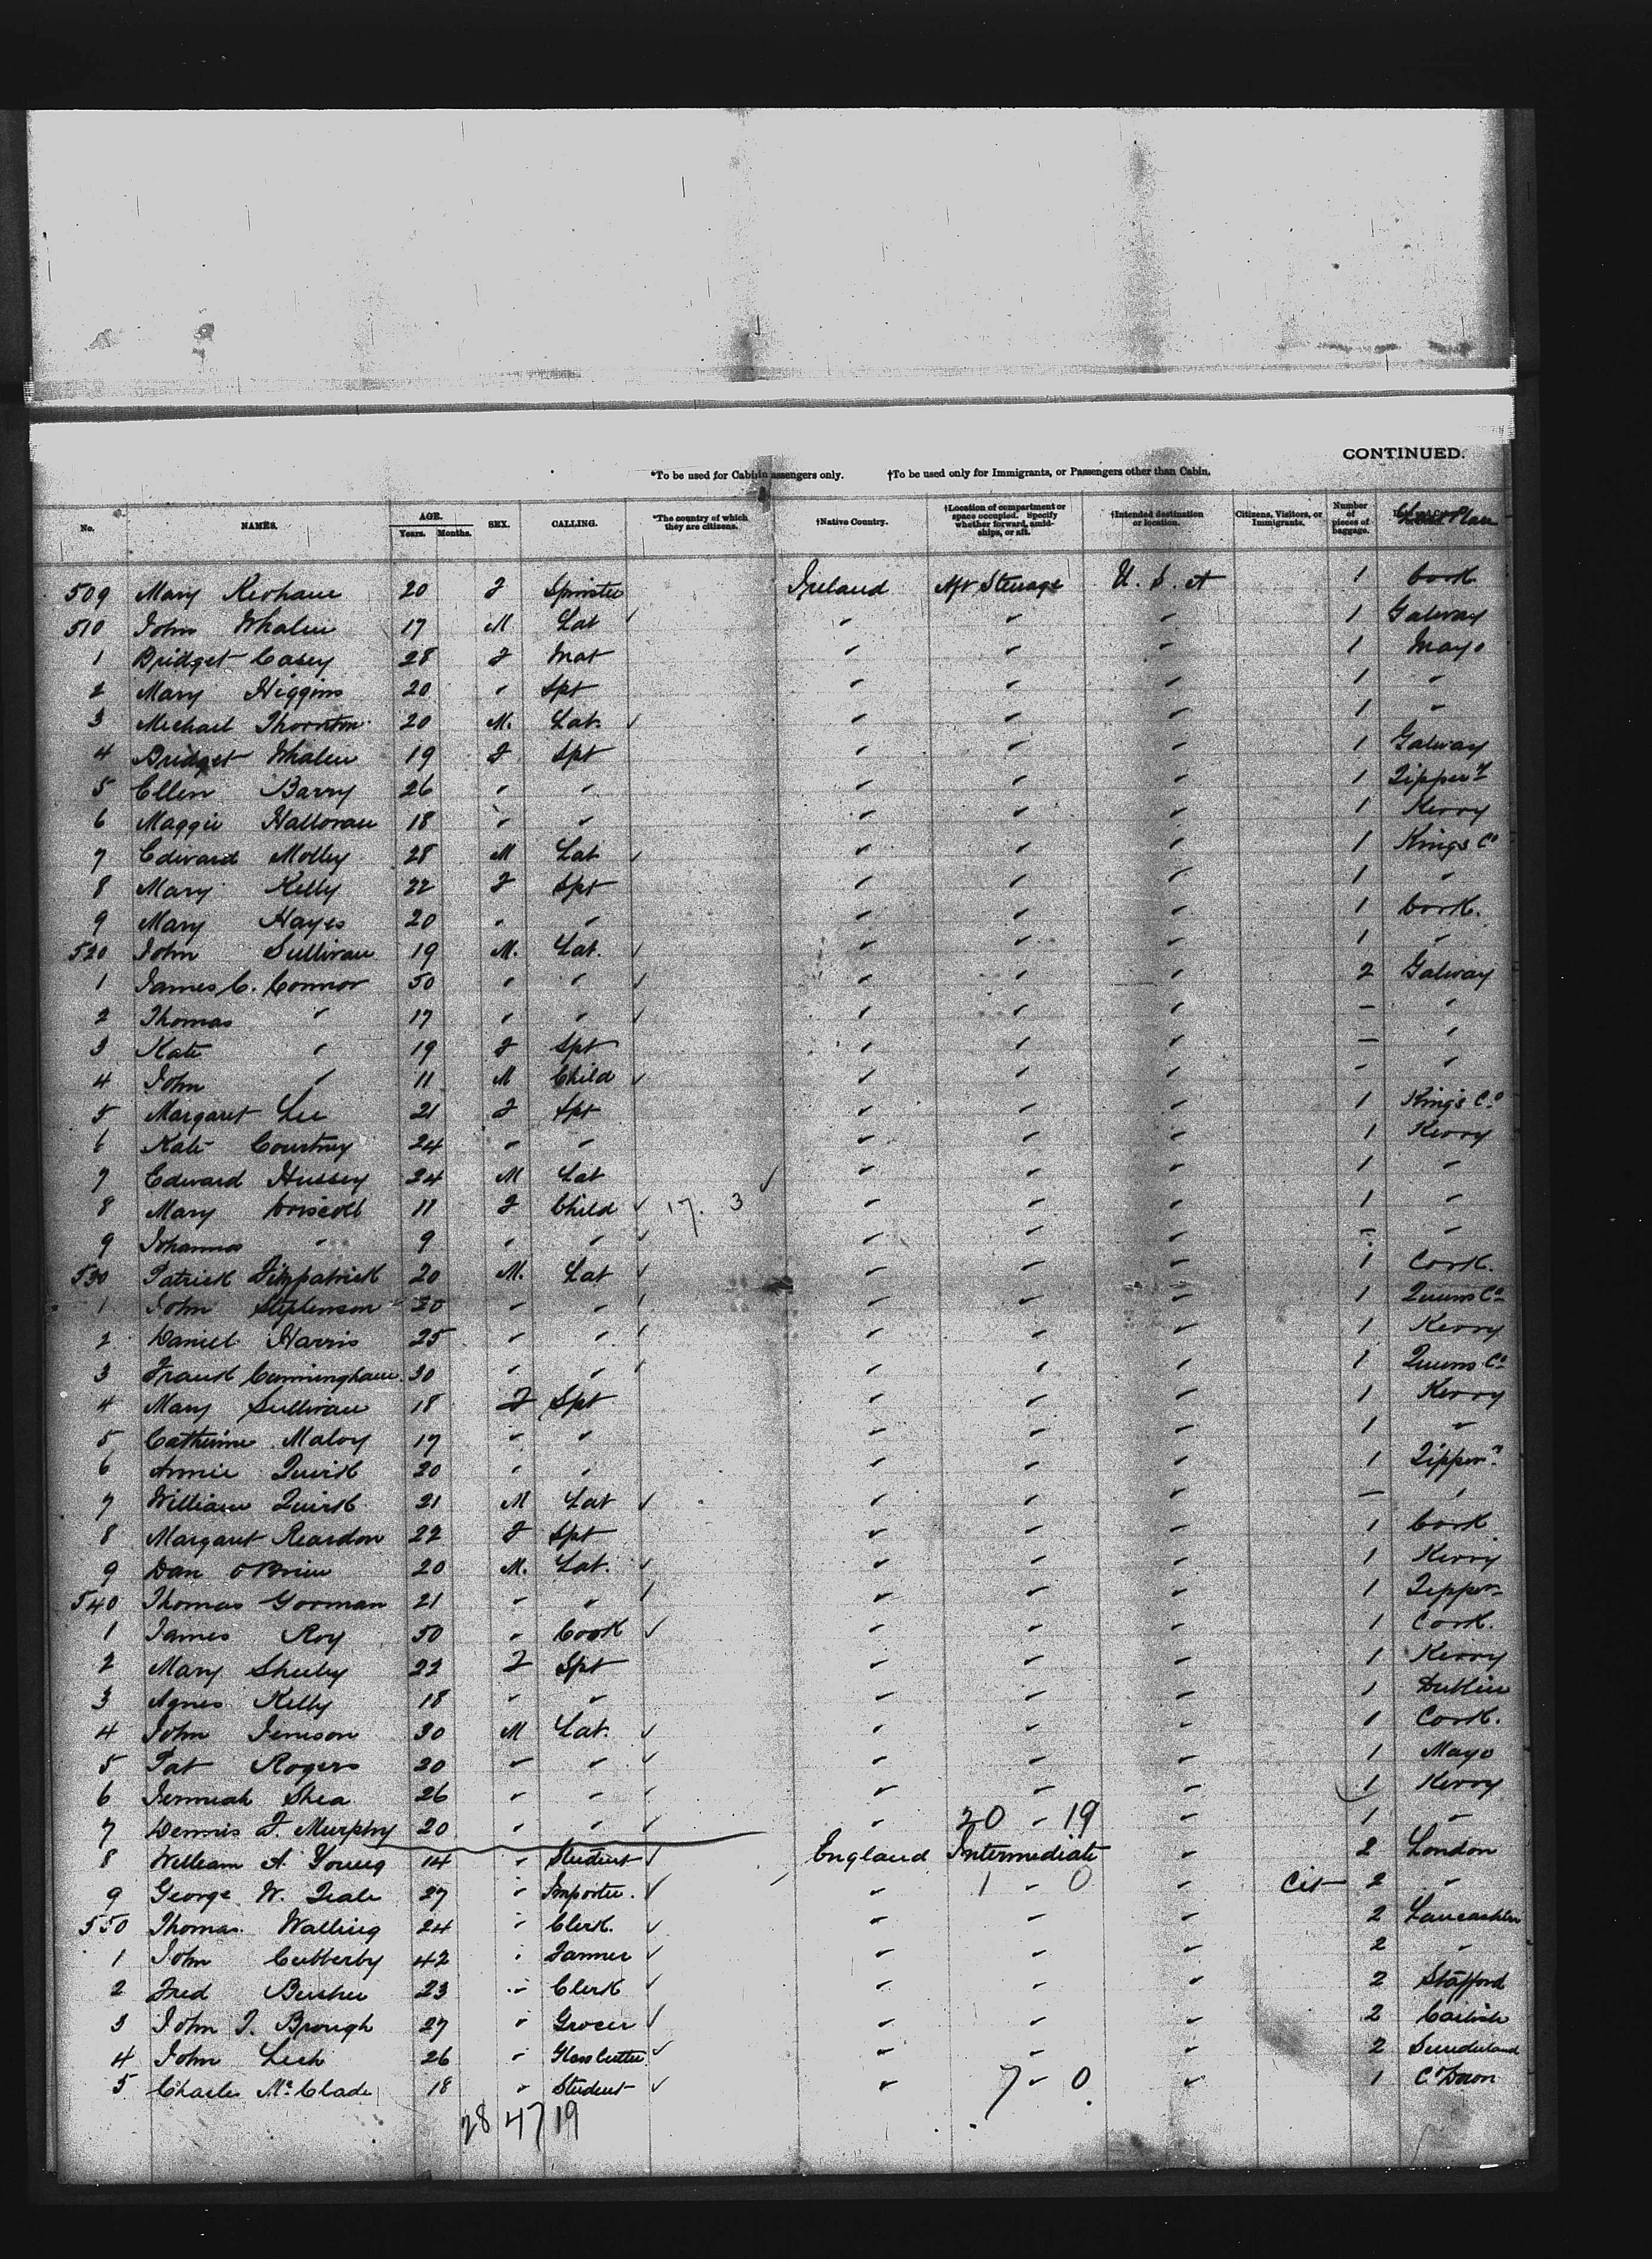 CONTINUED.
*To be used for Cabin Passengers only. †To be used only for Immigrants, or Passengers other than Cabin.
No. NAMES. AGE. Years. Months. SEX. CALLING. *The country of which they are citizens. †Native Country. †Location of compartment or space occupied. Specify whether forward, amidships, or aft. †Intended destination or location. Citizens, Visitors, or Immigrants. Number of pieces of baggage. Last Place
509 Mary Keohane 20 F Spinster Ireland Aft Steerage U.S.A 1 Cork
510 John Whalen 17 M Lab ✓ " " " 1 Galway
1 Bridget Casey 28 F Mat " " " 1 Mayo
2 Mary Higgins 20 " Spt " " " 1 "
3 Michael Thornton 20 M. Lab. ✓ " " " 1 "
4 Bridget Whalen 19 F Spt " " " 1 Galway
5 Ellen Barry 26 " " " " " 1 Tippery
6 Maggie Halloran 18 " " " " " 1 Kerry
7 Edward Molley 28 M Lab ✓ " " " 1 Kings Co
8 Mary Kelly 22 F Spt " " " 1 "
9 Mary Hayes 20 " " " " " 1 Cork.
520 John Sullivan 19 M. Lab. ✓ " " " 1 "
1 James C. Connor 50 " " ✓ " " " 2 Galway
2 Thomas " 17 " " ✓ " " " — "
3 Kate " 19 F Spt " " " — "
4 John " 11 M Child ✓ " " " - "
5 Margaret Lee 21 F Spt " " " 1 Kings Co
6 Kate Courtney 24 " " " " " 1 Kerry
7 Edward Hussey 24 M Lab ✓ " " " 1 "
8 Mary Driscoll 11 F Child ✓ 17. 3 " " " 1 "
9 Johanna " 9 " " ✓ " " " - "
530 Patrick Fitzpatrick 20 M. Lab ✓ " " " 1 Cork.
1 John Stephenson 20 " " ✓ " " " 1 Queens Co
2 Daniel Harris 25 " " ✓ " " " 1 Kerry
3 Frank Cunningham 30 " " ✓ " " " 1 Queens Co
4 Mary Sullivan 18 F Spt " " " 1 Kerry
5 Catherine Maloy 17 " " " " " 1 "
6 Annie Quirk 20 " " " " " 1 Tippery
7 William Quirk 21 M Lab ✓ " " " — "
8 Margaret Reardon 22 F Spt " " " 1 Cork
9 Dan O'Brien 20 M. Lab. ✓ " " " 1 Kerry
540 Thomas Gorman 21 " " ✓ " " " 1 Tippery
1 James Roy 50 " Cook ✓ " " " 1 Cork.
2 Mary Sheehy 22 F Spt " " " 1 Kerry
3 Agnes Kelly 18 " " " " " 1 Dublin
4 John Jemison 30 M Lab. ✓ " " " 1 Cork.
5 Pat Rogers 20 " " ✓ " " " 1 Mayo
6 Jermiah Shea 26 " " ✓ " " " 1 Kerry
7 Dennis F. Murphy 20 " " ✓ " 20 - 19 " 1 "
8 William A. Young 14 " Student ✓ England Intermediate " 2 London
9 George W. Teale 27 " Importer. ✓ " 1 - 0 " Cit 2 "
550 Thomas Walling 24 " Clerk ✓ " " " 2 Lancashire
1 John Cutterby 42 " Farmer ✓ " " " 2 "
2 Fred 23 " Clerk ✓ " " " 2 Stafford
3 John T. Brough 27 " Grocer ✓ " " " 2 Carlisle
4 John Lech 26 " Glass Cutter ✓ " " " 2 Sunderland
5 Charles McClade 18 " Student ✓ " 7 - 0 " 1 Co Down
28 47 19